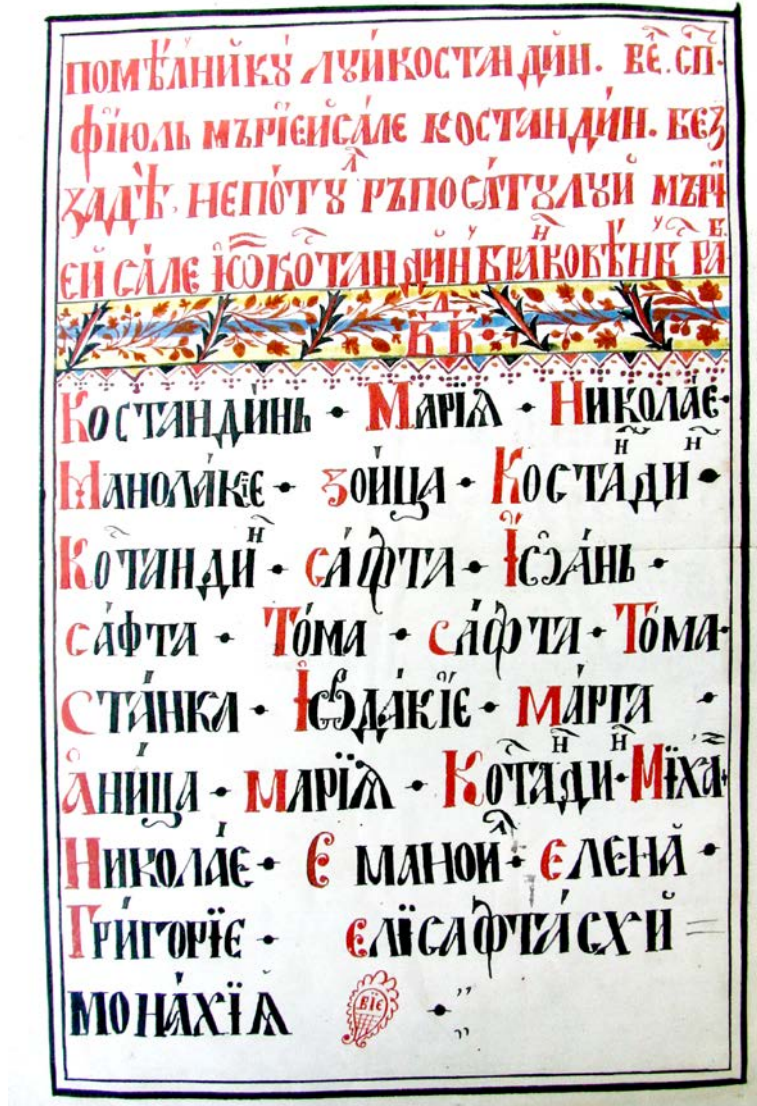 ПОМѢ́ЛНИКꙊ ЛꙊЙКОСТАНДИ́Н. ВЄ҃Л. СП҃.
ФЇЮЛЬ МЪРЇЄЙСА́ЛЄ КОСТАНДИ́Н. БЕЗ
ЗАДѢ́, НЕПО́ТꙊЛ РЪПОСА́ТꙊЛꙊЙ МЪРЇ
ЄЙ СА́ЛЕ ІѠ҃ КОⷭ҇ТАНДИ́Н БРАⷩ҇КОВѢ́НꙊ
КОСТАНДИ́НЬ • МАРЇꙖ • НИКОЛА́Є •
МАНОЛА́КЇЄ • ЗОИ́ЦА • КОСТАⷩ҇ДИⷩ҇ •
КОⷭ҇ТАНДИⷩ҇ • СА́ФТА • ІѠА́НЬ •
СА́ФТА • ТО́МА • СА́ФТА • ТО́МА •
СТА́НКА • ІѠРДА́КЇЄ • МА́РГА •
АНИ́ЦА • МАРЇꙖ • КОⷭ҇ТАⷩ҇ДИⷩ҇ • МЇХАⷧ҇ •
НИКОЛА́Є • Є МАНОИⷧ҇ • ЄЛЕНА̀ •
ГРИ́ГОРЇЄ • ЄЛЇСАФТА́ СХЙ
МОНА́ХЇꙖ ВЇЄ